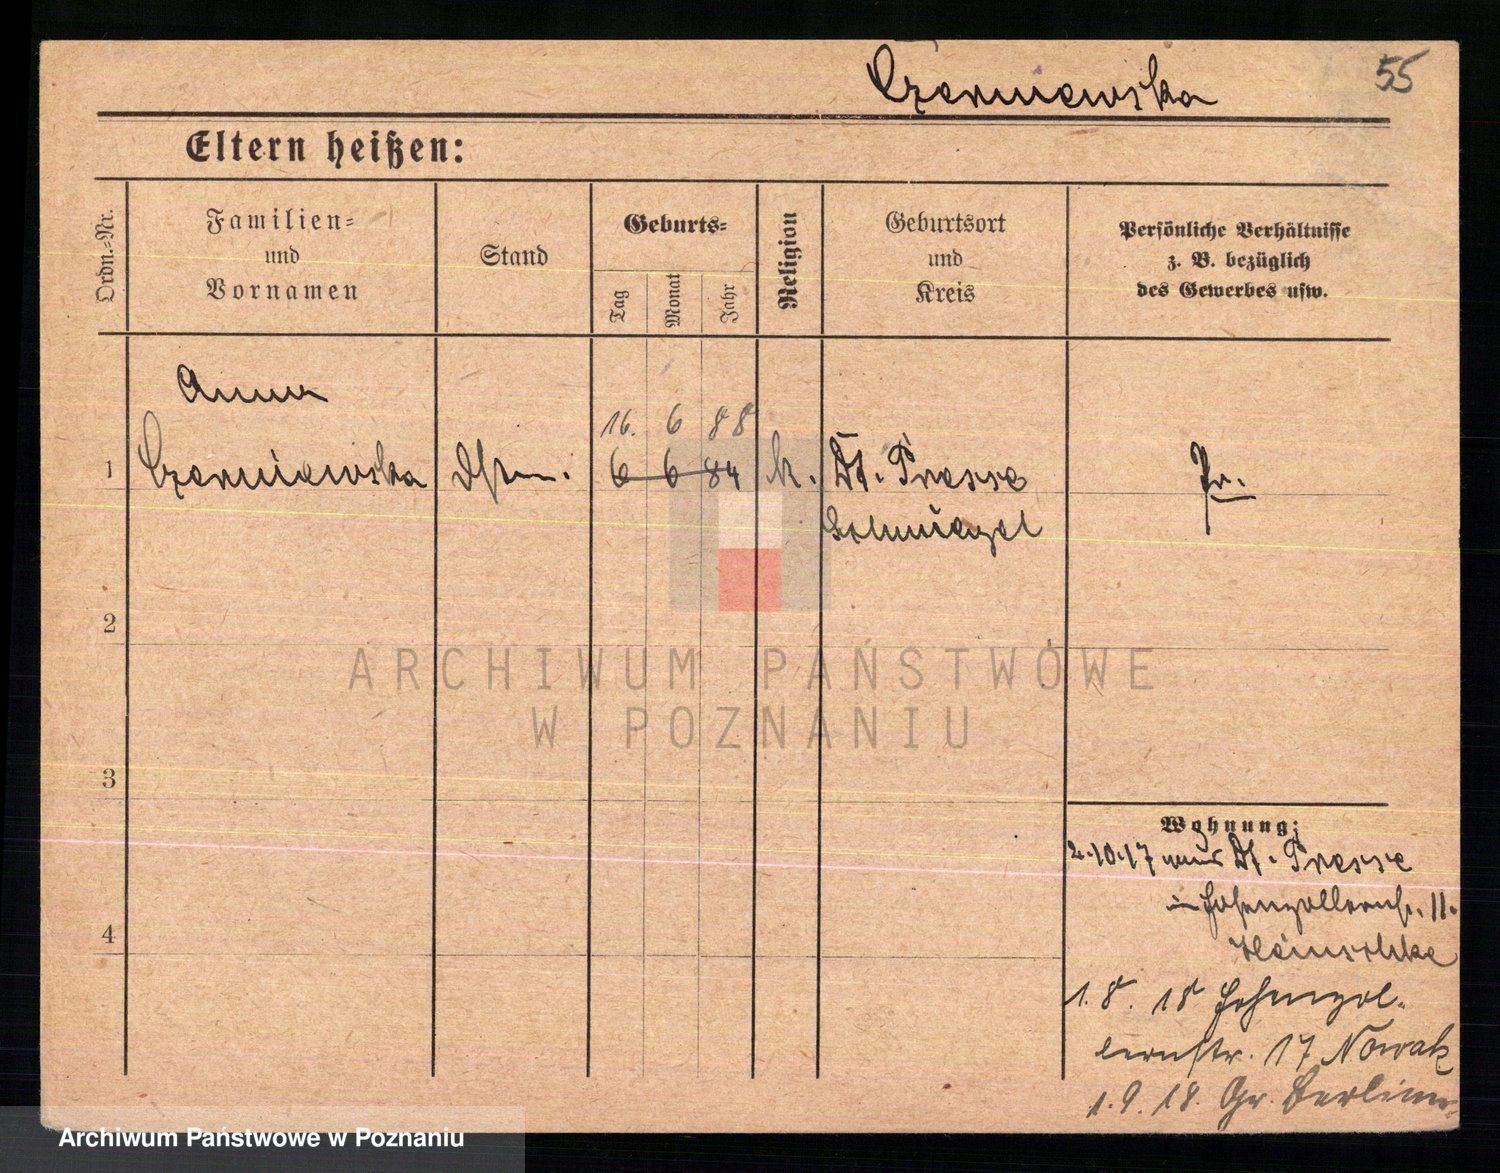 Czerniewska
55
Eltern heißen:
Ordn.-Nr.
Familien-
und
Vornamen
Stand
Geburts-
Tag
Monat
Jahr
Religion
Geburtsort
und
Kreis
Persönliche Verhältnisse
z. B. bezüglich
des Gewerbes usw.
Anna
16. 6 88
1 Czerniewska 6 6 84 k. Dt. Presse Pr.
Schmiegel
2
ARCHIWUM PAŃSTWOWE
W POZNANIU
3
Wohnung:
2.10.17 aus Dt. Presse
in Hohenzollernstr. 11.
4
1.8.18 Hohenzol-
lernstr. 17 Nowak
1.9.18. Gr. Berliner
Archiwum Państwowe w Poznaniu